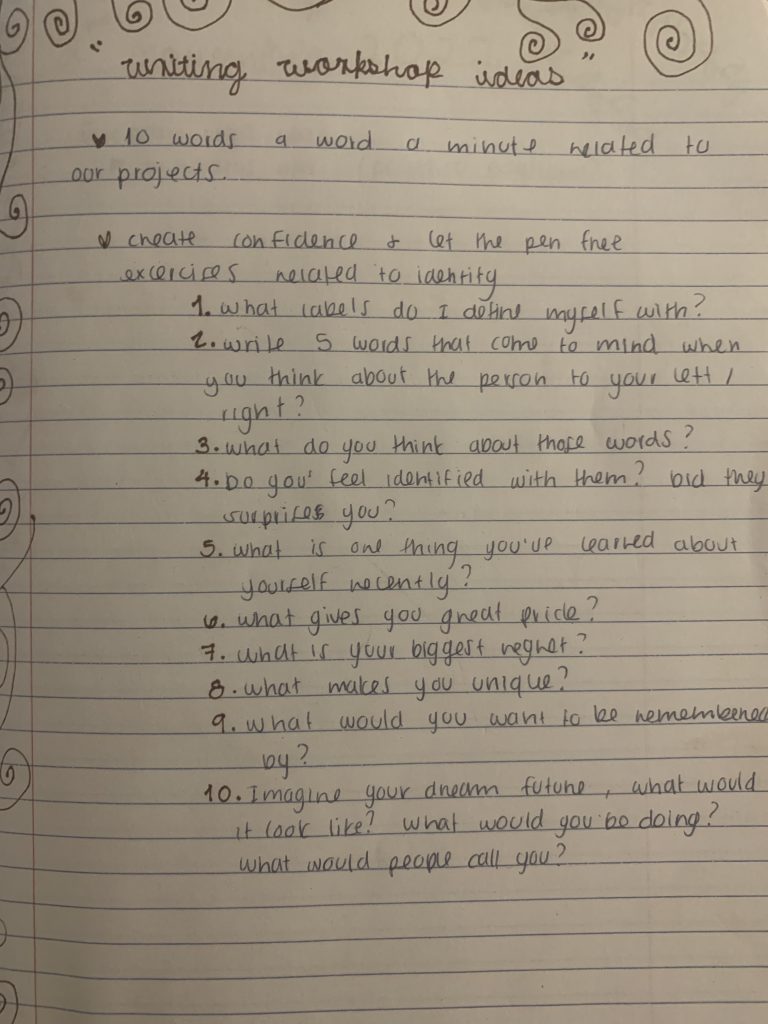 "writing workshop ideas"
10 words a word a minute related to
our projects.
create confidence & let the pen free
excercices related to identity
1. what labels do I define myself with?
2. write 5 words that come to mind when
you think about the person to your left /
right?
3. what do you think about those words?
4. Do you feel identified with them? Did they
surprises you?
5. what is one thing you've learned about
yourself recently?
6. what gives you great pride?
7. what is your biggest regret?
8. what makes you unique?
9. what would you want to be remembered
by?
10. Imagine your dream future, what would
it look like? what would you be doing?
what would people call you?